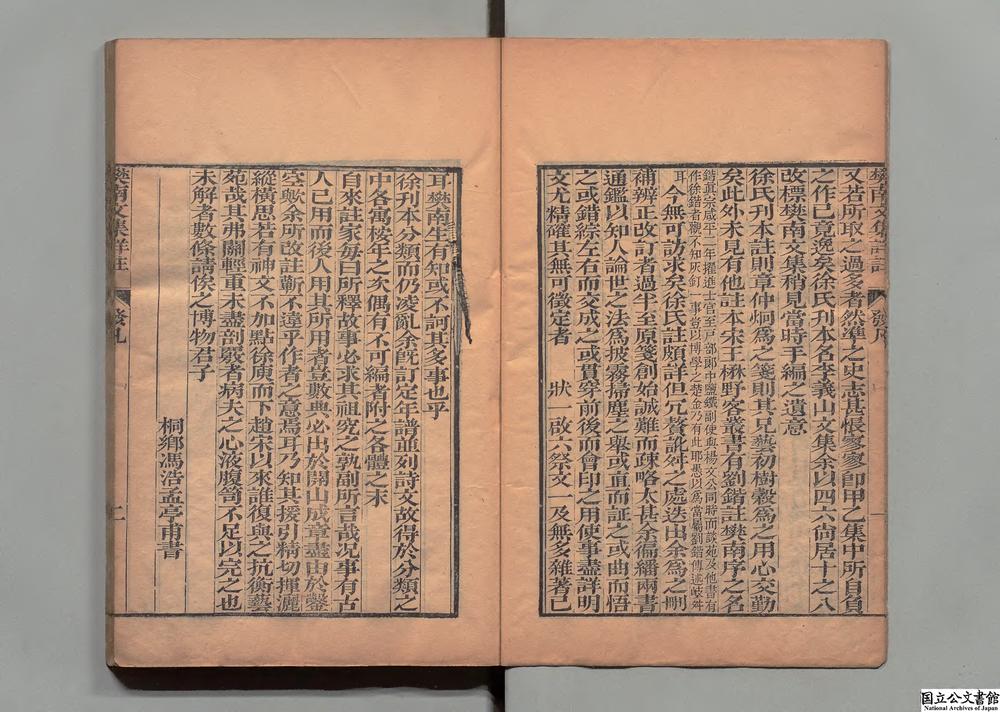 又若所取之過多者然準之史志甚悵寥寥卽甲乙集中所自負
之作已竟逸矣徐氏刊本名李義山文集余以四六尚居十之八
改標樊南文集稍見當時手編之遺意
徐氏刊本註則章仲炯爲之箋則其兄藝初樹穀爲之用心交勤
矣此外未見有他註本宋王楙野客叢書有劉鍇註樊南序之名
鍇眞宗咸平二年擢進士官至戶部郞中鹽鐵副使與楊文公同時而談苑及他書有
作徐鍇者糭不知灰釘一事豈以博學之楚金乃有此耶愚以爲當屬劉鍇傳述歧舛
耳今無可訪求矣徐氏註頗詳但冗贅訛舛之處迭出余爲之刪
補辨正改訂者過半至原箋創始誠難而疎略太甚余徧繙兩書
通鑑以知人論世之法爲披霧掃塵之舉或直而証之或曲而悟
之或錯綜左右而交成之或貫穿前後而會印之用使事盡詳明
文尤精確其無可徵定者 狀一啟六祭文一及無多雜著已
耳樊南生有知或不訶其多事也乎
徐刊本分類而仍凌亂余旣訂定年譜並列詩文故得於分類之
中各寓按年之次偶有不可編者附之各體之末
自來註家每曰所釋故事必求其祖究之孰副所言哉况事有古
人已用而後人用其所用者豈數典必出於開山成章盡由於鑿
空歟余所改註蘄不遠乎作者之意焉耳乃知其援引精切揮灑
縱横思若有神文不加點徐庾而下趙宋以來誰復與之抗衡藝
苑哉其弗關輕重未盡剖駮者病夫之心液腹笥不足以完之也
未解者數條請俟之博物君子
桐鄉馮浩孟亭甫書
樊南文集詳註
發凡
二